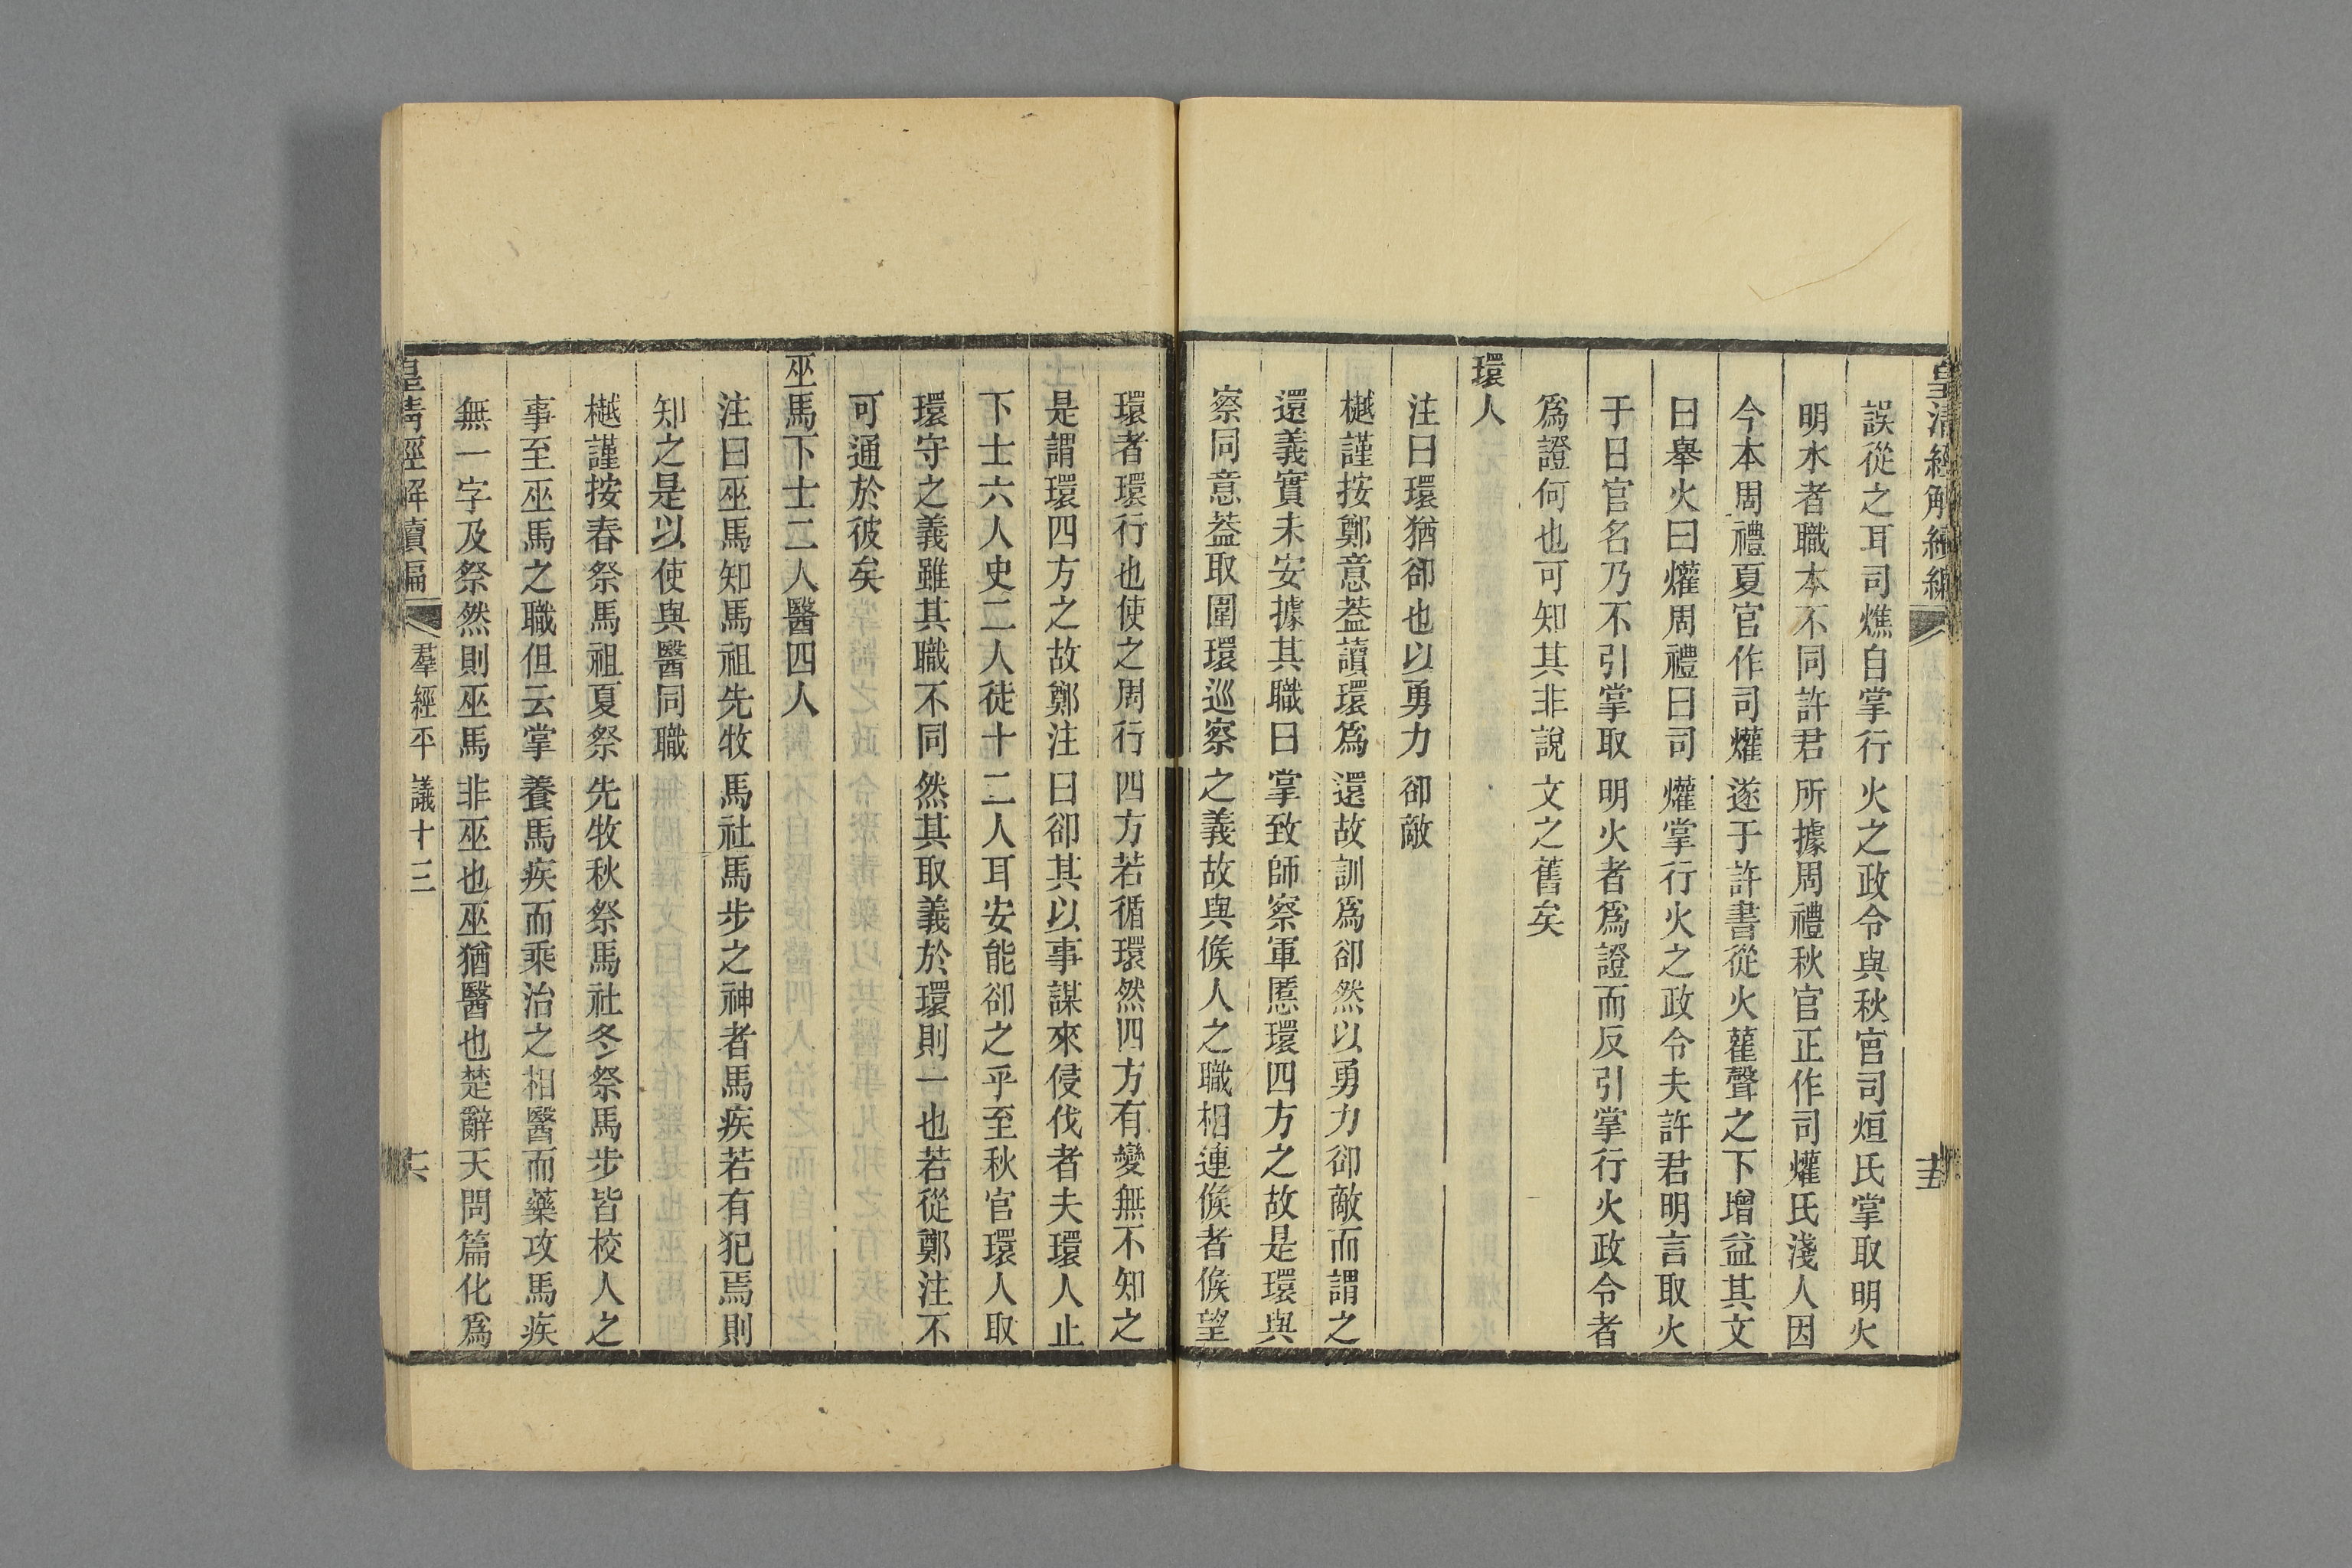 皇清經解續編
十五
誤從之耳司爟自掌行火之政令與秋官司烜氏掌取明火
明水者職本不同許君所據周禮秋官正作司爟氏淺人因
今本周禮夏官作司爟遂于許書從火雚聲之下增益其文
曰舉火曰爟周禮曰司爟掌行火之政令夫許君明言取火
于日官名乃不引掌取明火者爲證而反引掌行火政令者
爲證何也可知其非說文之舊矣
環人
注曰環猶卻也以勇力卻敵
樾謹按鄭意葢讀環爲還故訓爲卻然以勇力卻敵而謂之
還義實未安據其職曰掌致師察軍慝環四方之故是環與
察同意葢取圍環巡察之義故與候人之職相連候者候望
環者環行也使之周行四方若循環然四方有變無不知之
是謂環四方之故鄭注曰卻其以事謀來侵伐者夫環人止
下士六人史二人徒十二人耳安能卻之乎至秋官環人取
環守之義雖其職不同然其取義於環則一也若從鄭注不
可通於彼矣
巫馬下士二人醫四人
注曰巫馬知馬祖先牧馬社馬步之神者馬疾若有犯焉則
知之是以使與醫同職
樾謹按春祭馬祖夏祭先牧秋祭馬社冬祭馬步皆校人之
事至巫馬之職但云掌養馬疾而乘治之相醫而藥攻馬疾
無一字及祭然則巫馬非巫也巫猶醫也楚辭天問篇化爲
皇清經解續編
羣經平議十三
十六